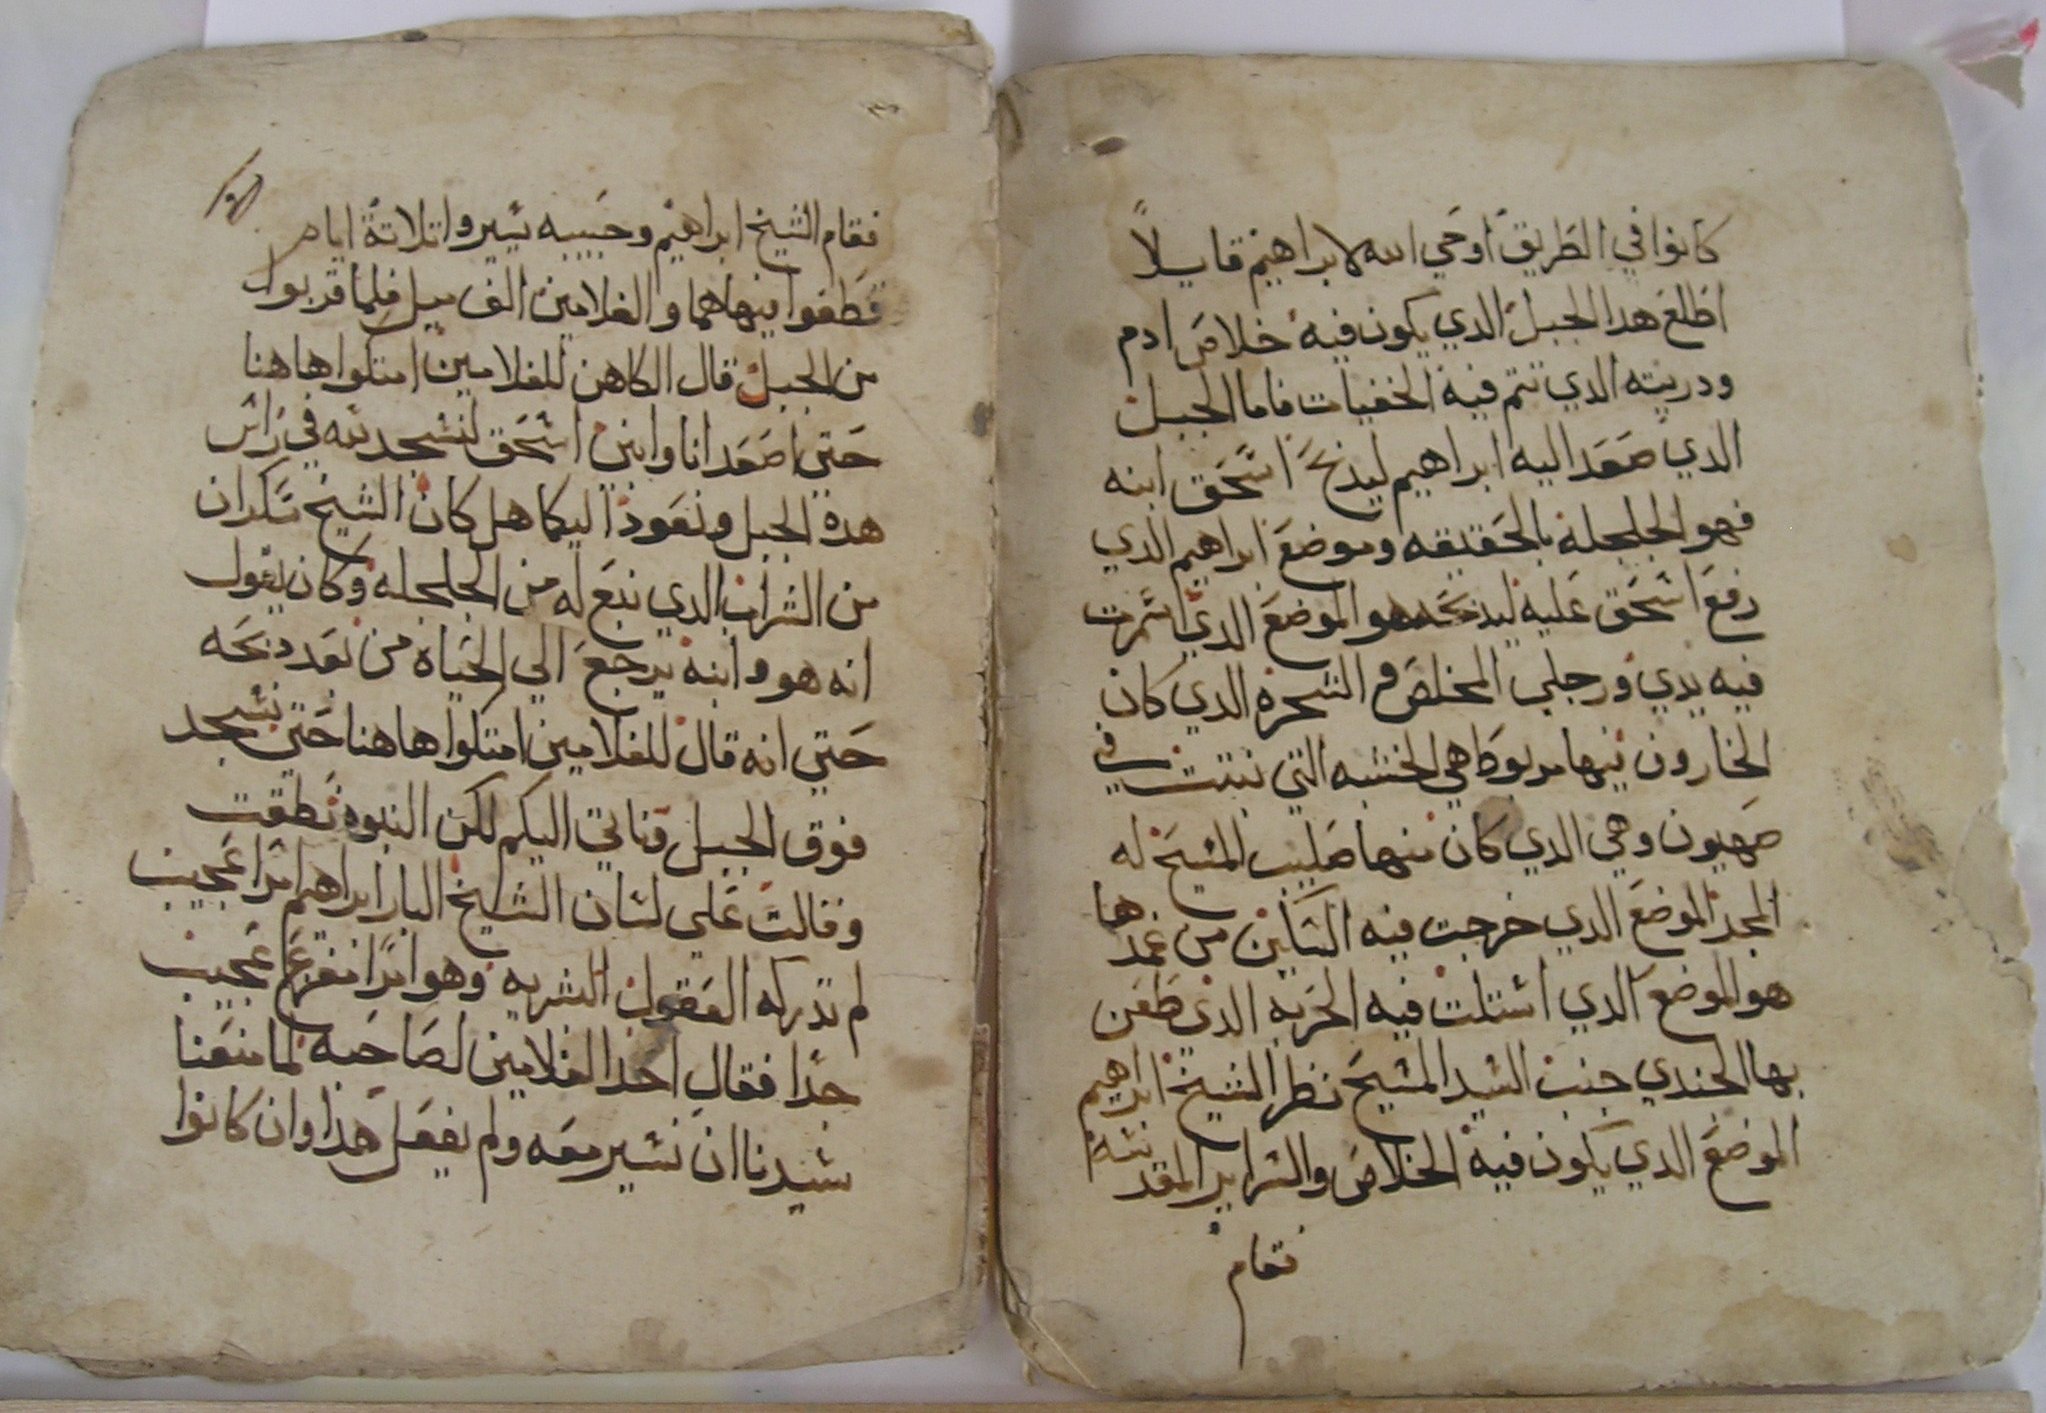 كانوا في الطريق اوحي الله لابراهيم قايلاً
اطلع هدا الجبل الدي يكون فيه خلاص ادم
ودريته الدي تتم فيه الخفيات فاما الجبل
الدي صعد اليه ابراهيم ليدبح اسحق ابنه
فهو الجلجلة بالحقيقه وموضع ابراهيم الدي
رفع اسحق عليه ليدبحه هو الموضع الدي اتسمرت
فيه يدي ورجلي المخلص والشجره الدي كان
الخاروف فيها مربوط هي الخشبه التي نبتت في
صهيون وهي الدي كان منها صليب المسيح له
المجد الموضع الدي خرجت فيه السكين من غمدها
هو الموضع الدي استلت فيه الحربه الدي طعن
بها الجندي جنب السيد المسيح نظر الشيخ ابراهيم
الموضع الدي يكون فيه الخلاص والسراير المقدسه
فقام
فقام الشيخ ابراهيم وحبيبه يسيروا تلاتة ايام
قطعوا فيها هما والغلامين الف ميل فلما قربوا
من الجبل قال الكاهن للغلامين امتكوا هاهنا
حتي اصعد انا وابني اسحق لنسجد لله في راس
هده الجبل ونعود اليكما هل كان الشيخ سكران
من الشراب الدي نبع له من الجلجله وكان يقول
انه هو وابنه يرجع الي الحياه من بعد دبحه
حتي انه قال للغلامين امتكوا هاهنا حتي نسجد
فوق الجبل وناتي اليكم لكن النبوه نطقت
وقالت علي لسان الشيخ البار ابراهيم امرا عجيب
لم تدركه العقول البشريه وهو امرًا مفزع عجيب
جدًا فقال احد الغلامين لصاحبه لما منعنا
سيدنا ان نسير معه ولم يفعل هدا وان كانوا